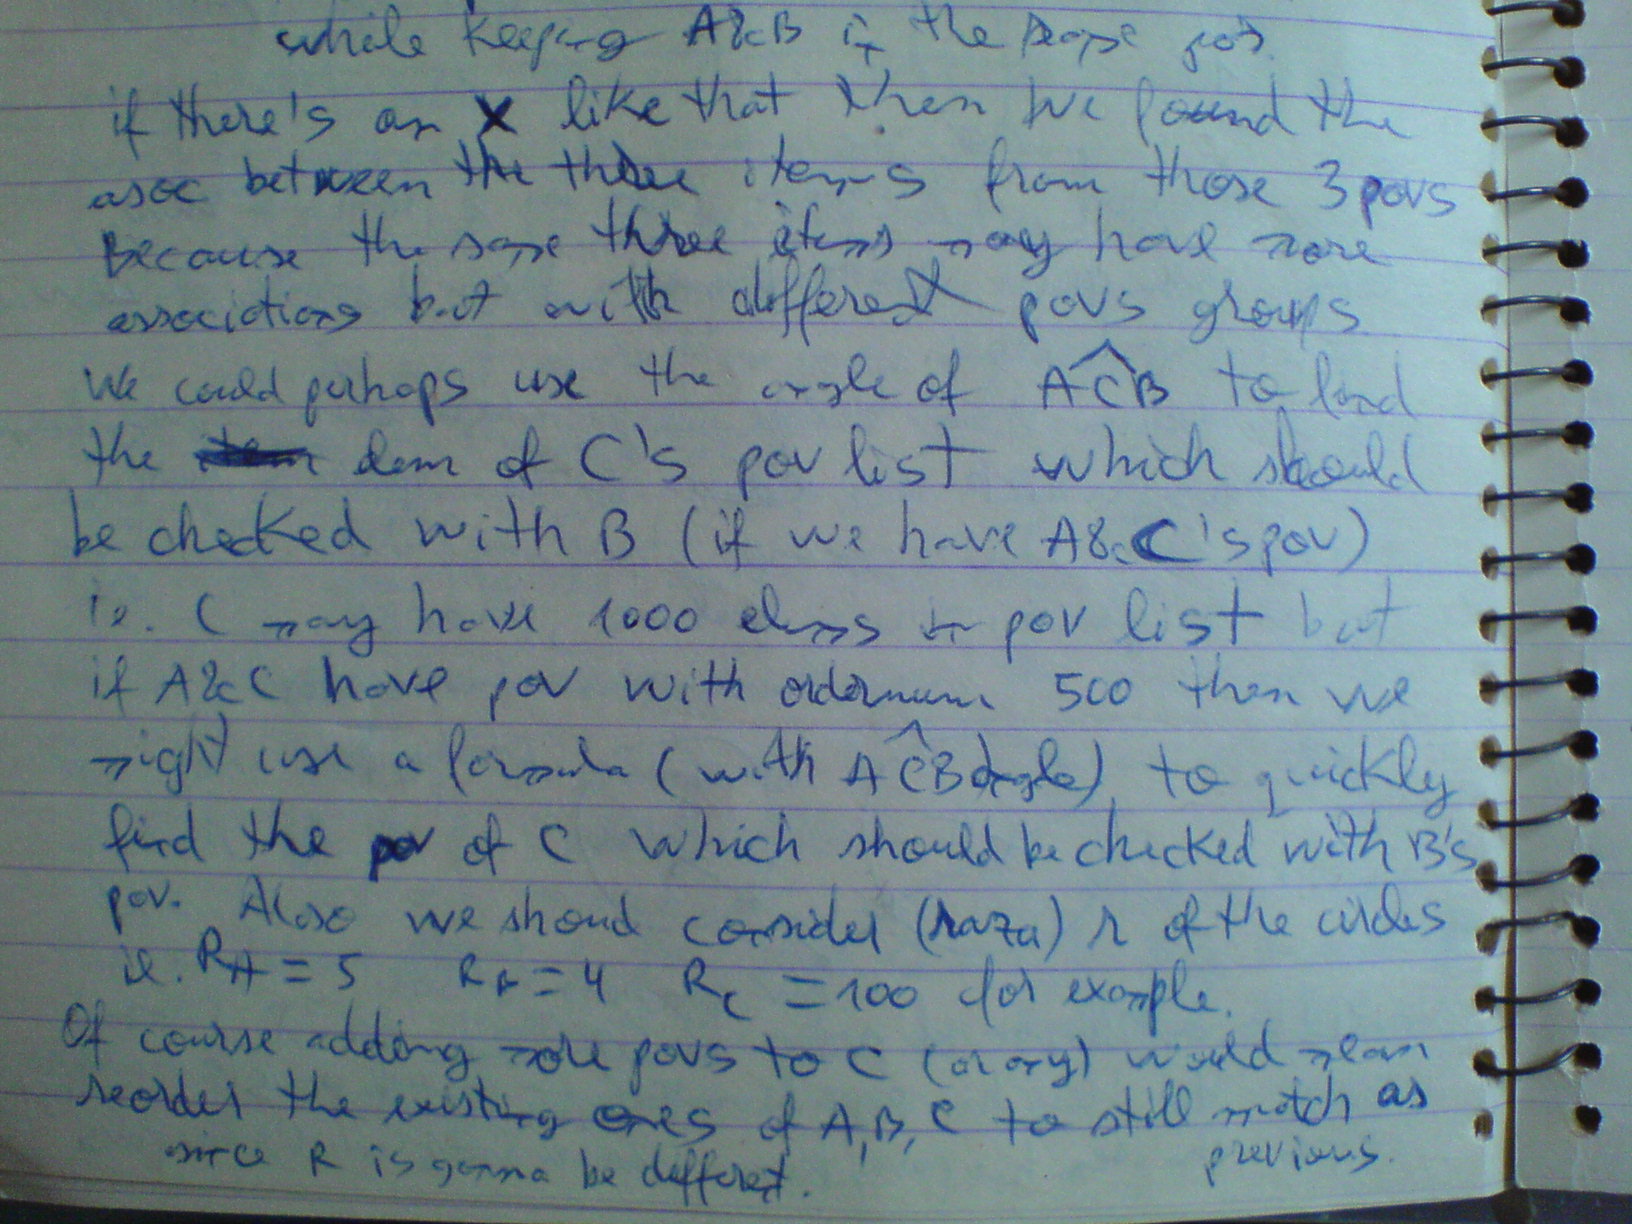 while keeping A&B in the same pos.
if there's an X like that then we found the
asoc between the three items from those 3 povs
Because the same three items may have more
associations but with different povs groups
We could perhaps use the angle of AĈB to find
the elem of C's pov list which should
be checked with B (if we have A&C's pov)
ie. C may have 1000 elems in pov list but
if A&C have pov with ordernum 500 then we
might use a formula (with AĈB angle) to quickly
find the pov of C which should be checked with B's
pov. Also we should consider (raza) r of the circles
ie. R_A = 5 R_B = 4 R_C = 100 for example.
Of course adding more povs to C (or any) would mean
reorder the existing ones of A,B,C to still match as
previous.
since R is gonna be different.